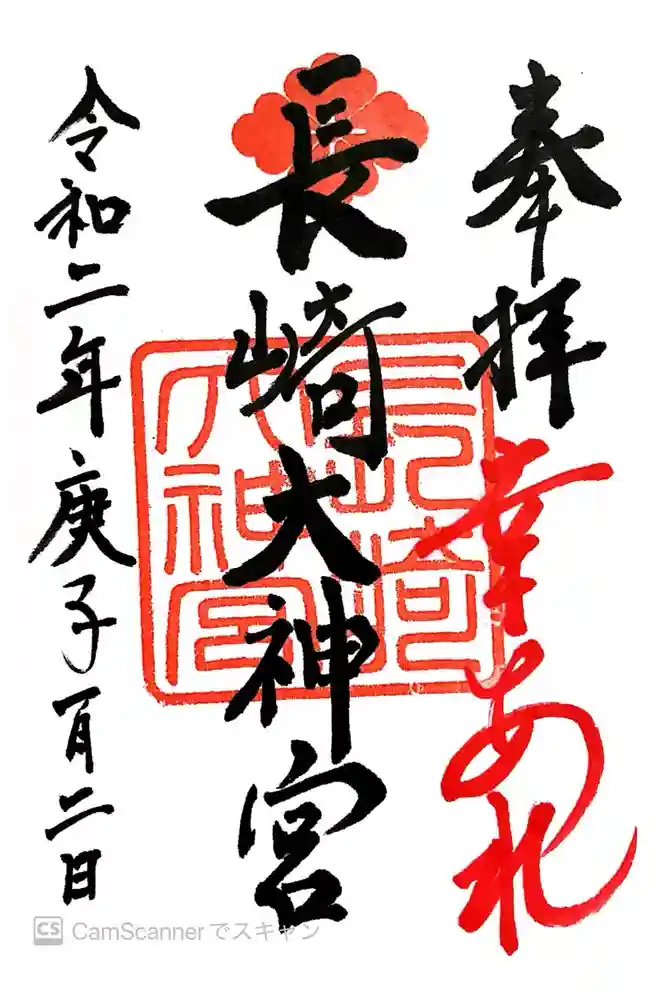 奉拝
幸あれ
長崎大神宮
長崎
大神宮
令和二年庚子一月二日
CS CamScannerでスキャン